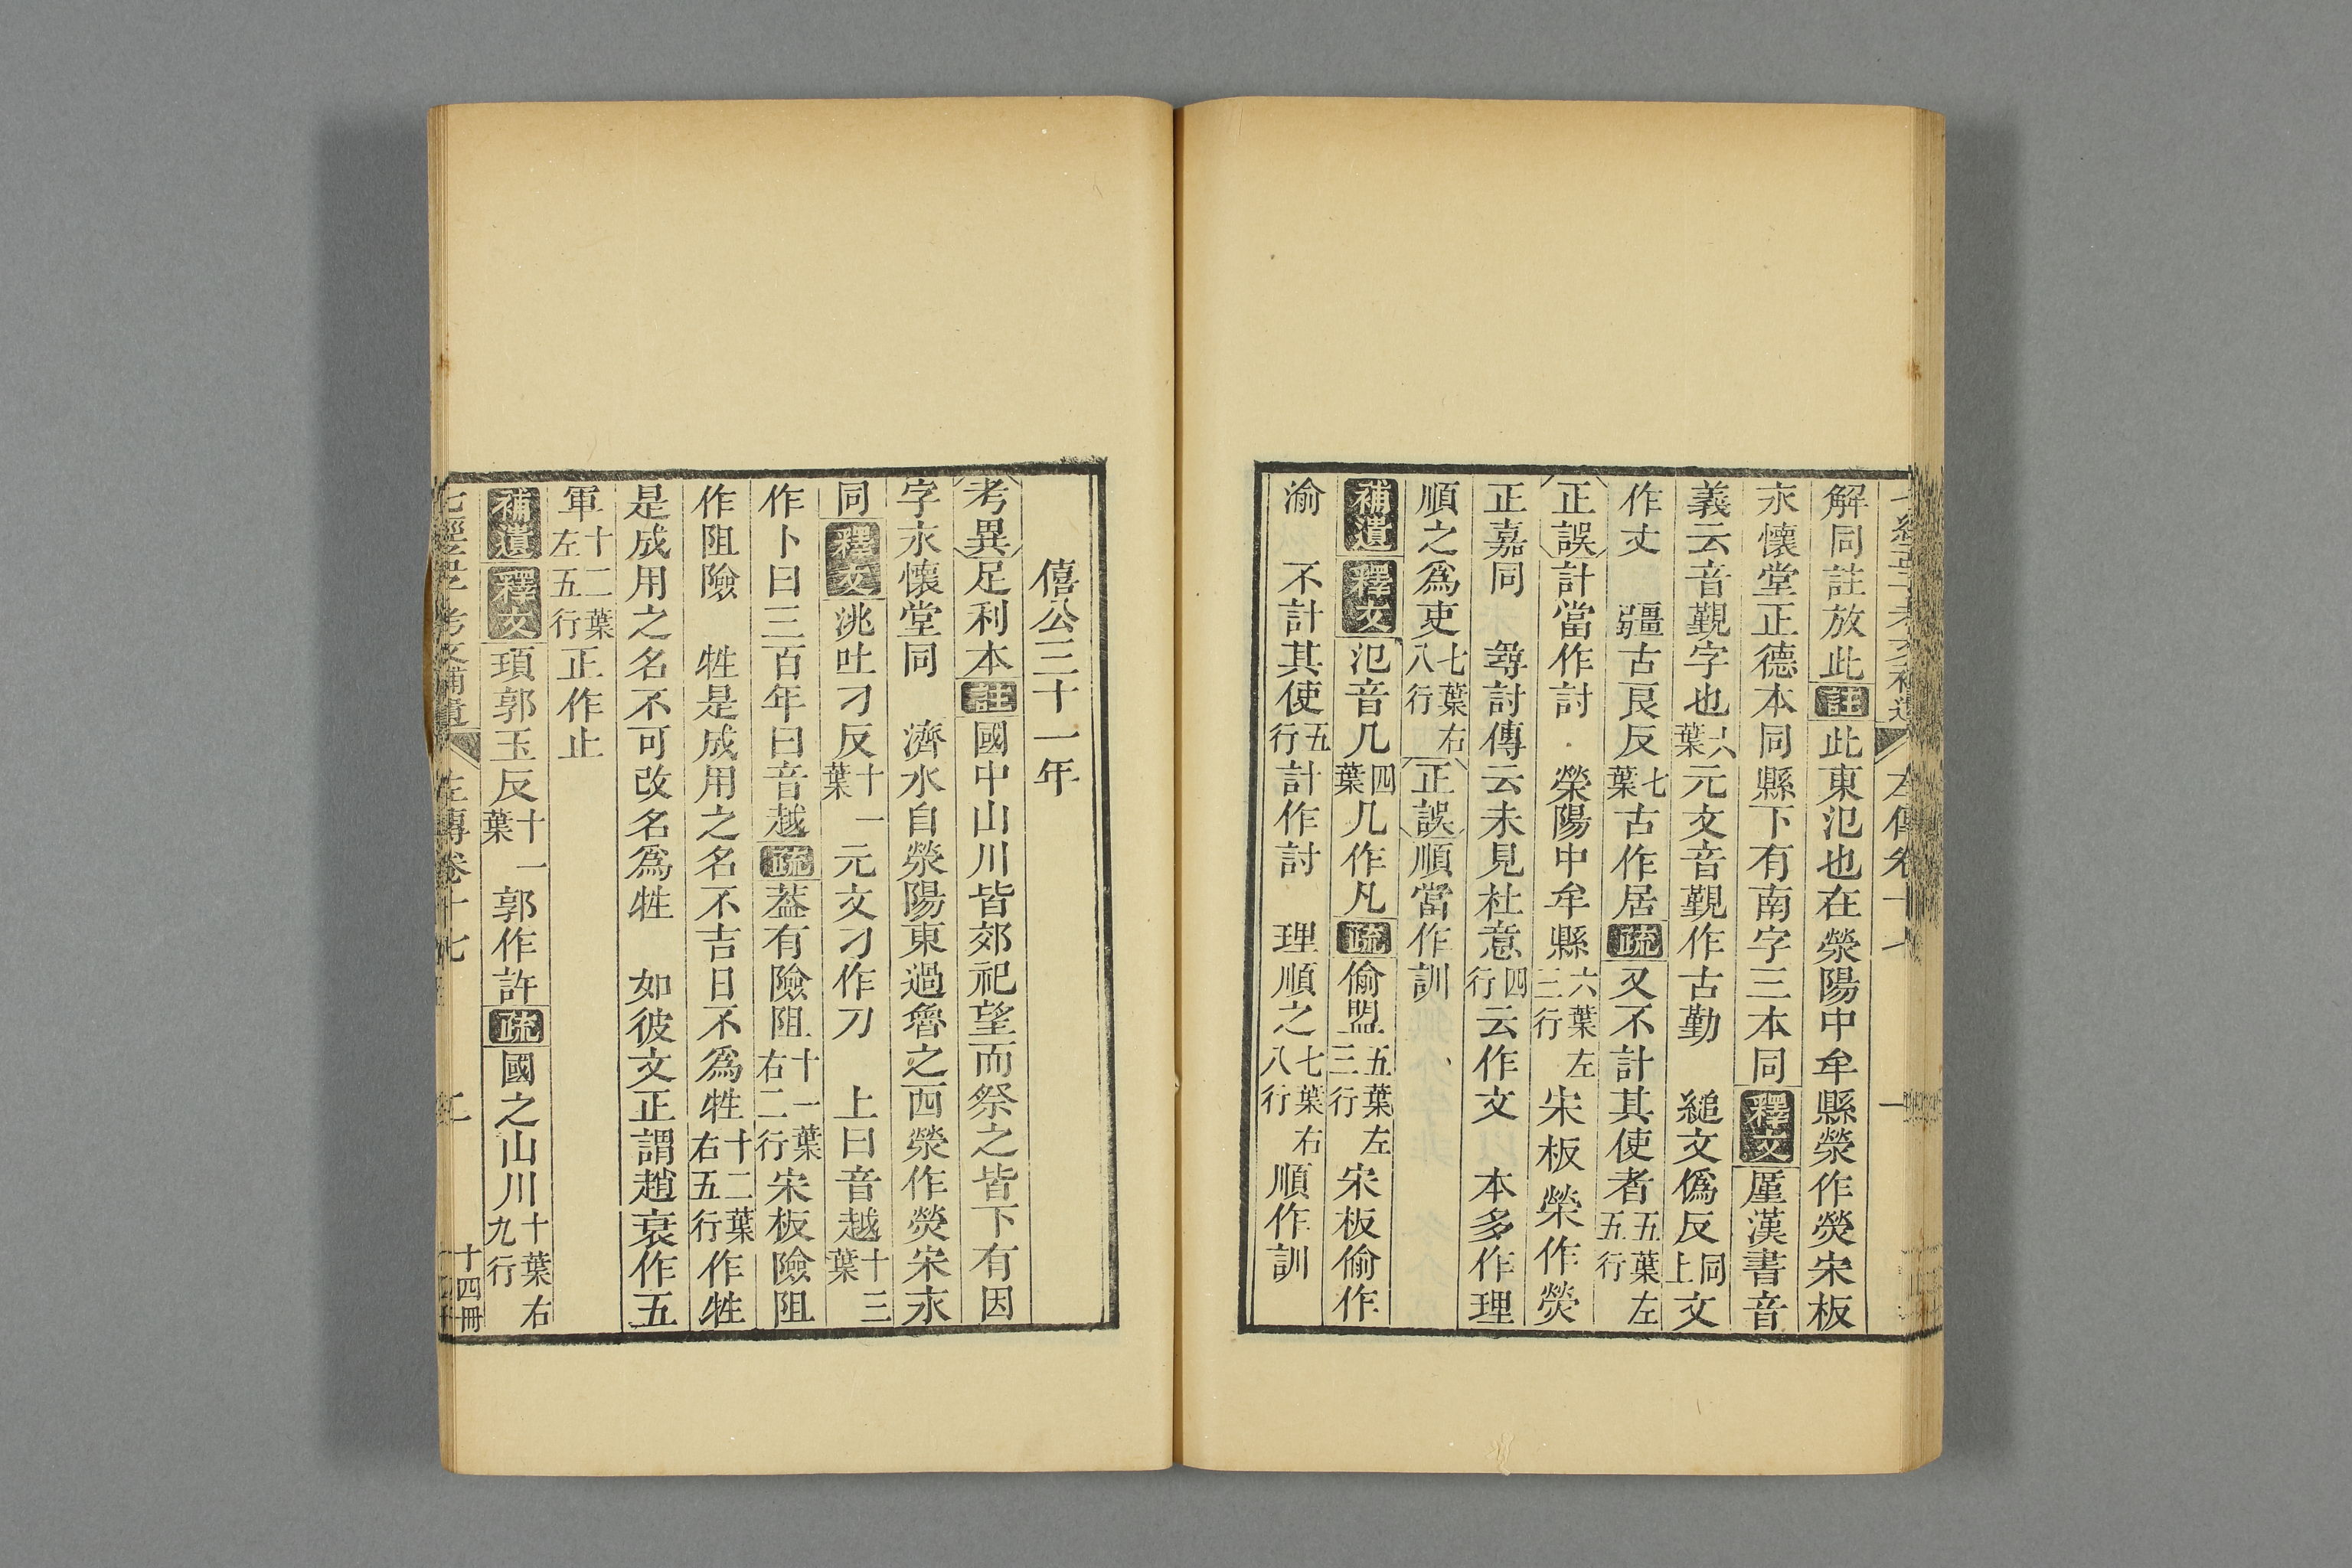 解同註放此註此東氾也在滎陽中牟縣滎作熒宋板
永懷堂正德本同縣下有南字三本同釋文厪漢書音
義云音覲字也六葉元文音覲作古勤　縋文僞反同上文
作丈　疆古艮反七葉古作居疏又不計其使者五葉左五行
正誤計當作討　榮陽中牟縣六葉左三行宋板榮作熒
正嘉同　尋討傳云未見杜意四行云作文　本多作理
順之爲吏七葉右八行正誤順當作訓
補遺釋文氾音几四葉几作凡疏偷盟五葉左三行宋板偷作
渝　不計其使五行計作討　理順之七葉右八行順作訓
僖公三十一年
考異足利本註國中山川皆郊祀望而祭之皆下有因
字永懷堂同　濟水自滎陽東過魯之西滎作熒宋永
同釋文洮吐刁反十一葉元文刁作刀　上曰音越十三葉
作卜曰三百年曰音越疏蓋有險阻十一葉右二行宋板險阻
作阻險　牲是成用之名不吉日不爲牲十二葉右五行作牲
是成用之名不可改名爲牲　如彼文正謂趙衰作五
軍十二葉左五行正作止
補遺釋文頊郭玉反十一葉郭作許疏國之山川十葉右九行
七經孟子考文補遺　左傳卷十七　二　十四冊